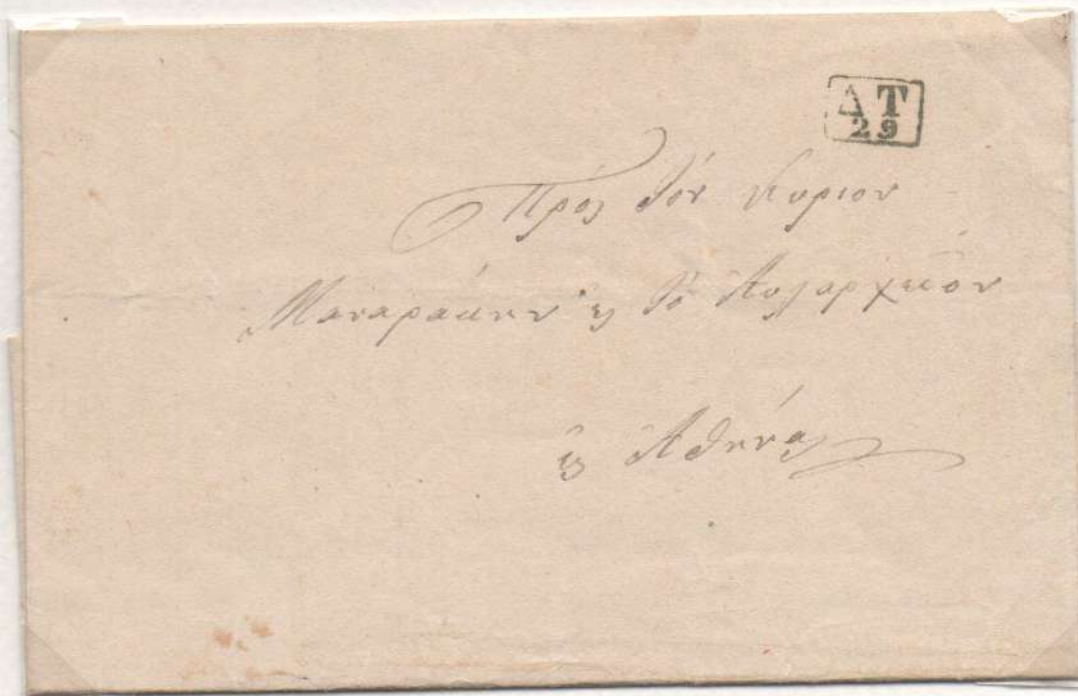 ΔΤ
29
Πρὸς τὸν Κύριον
Μαναράκην εἰς τὸ Αὐλαρχεῖον
εἰς Ἀθήνας